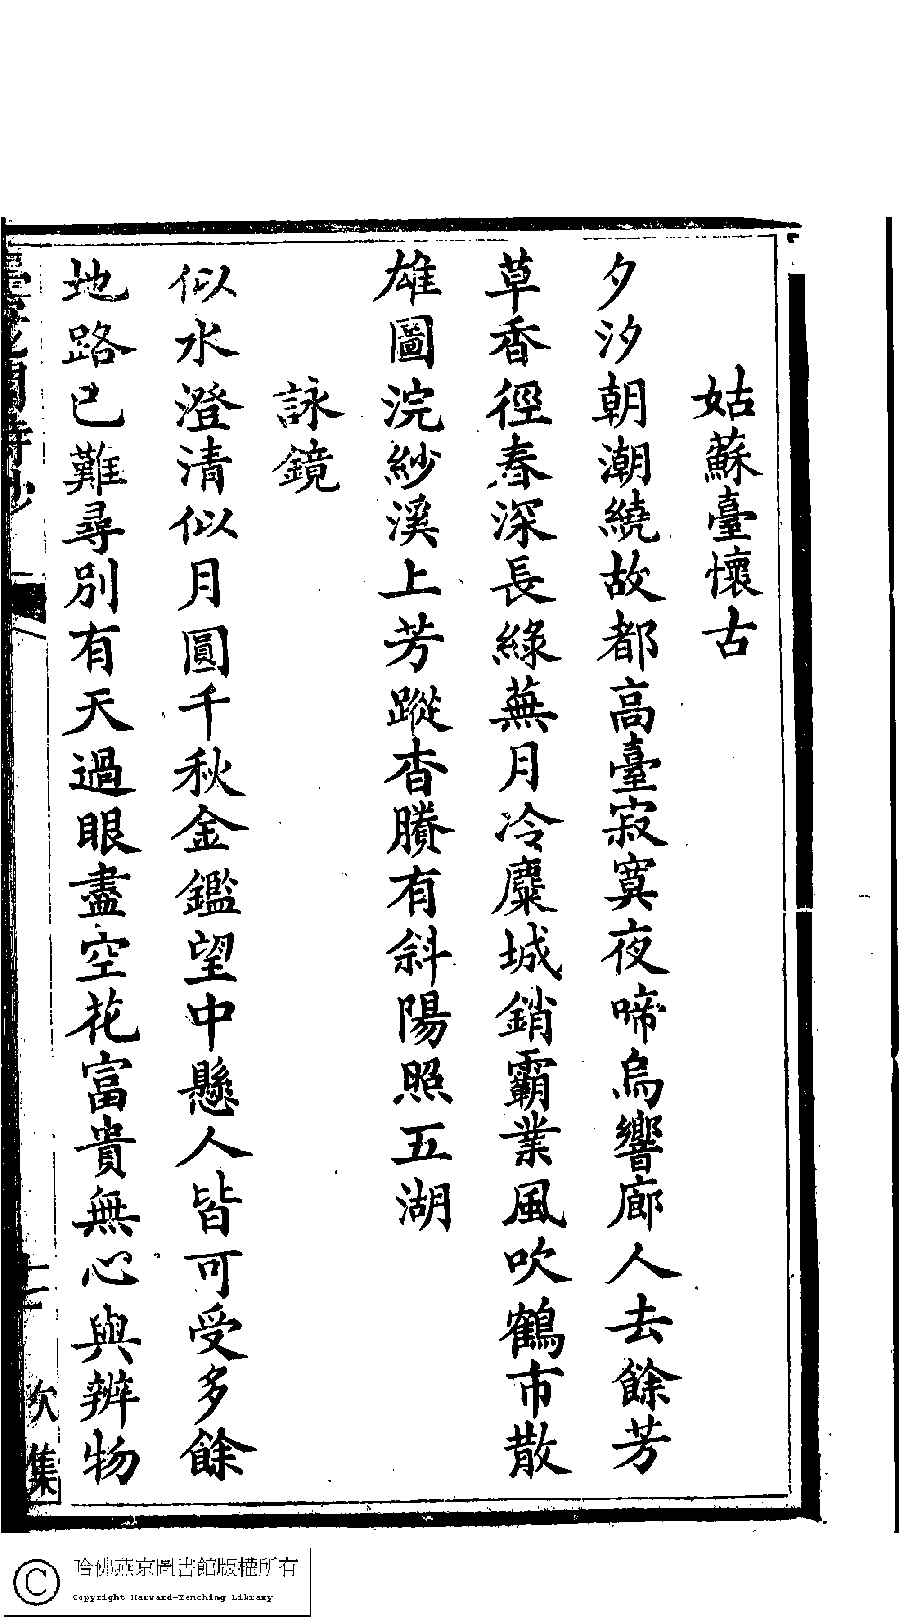 姑蘇臺懷古
夕汐朝潮繞故都高臺寂寞夜啼烏響廊人去餘芳
草香徑春深長綠蕪月冷麋城銷霸業風吹鶴市散
雄圖浣紗溪上芳蹤杳賸有斜陽照五湖
詠鏡
似水澄清似月圓千秋金鑑望中懸人皆可受多餘
地路已難尋別有天過眼盡空花富貴無心與辨物
哈佛燕京圖書館版權所有
Copyright Harvard-Yenching Library